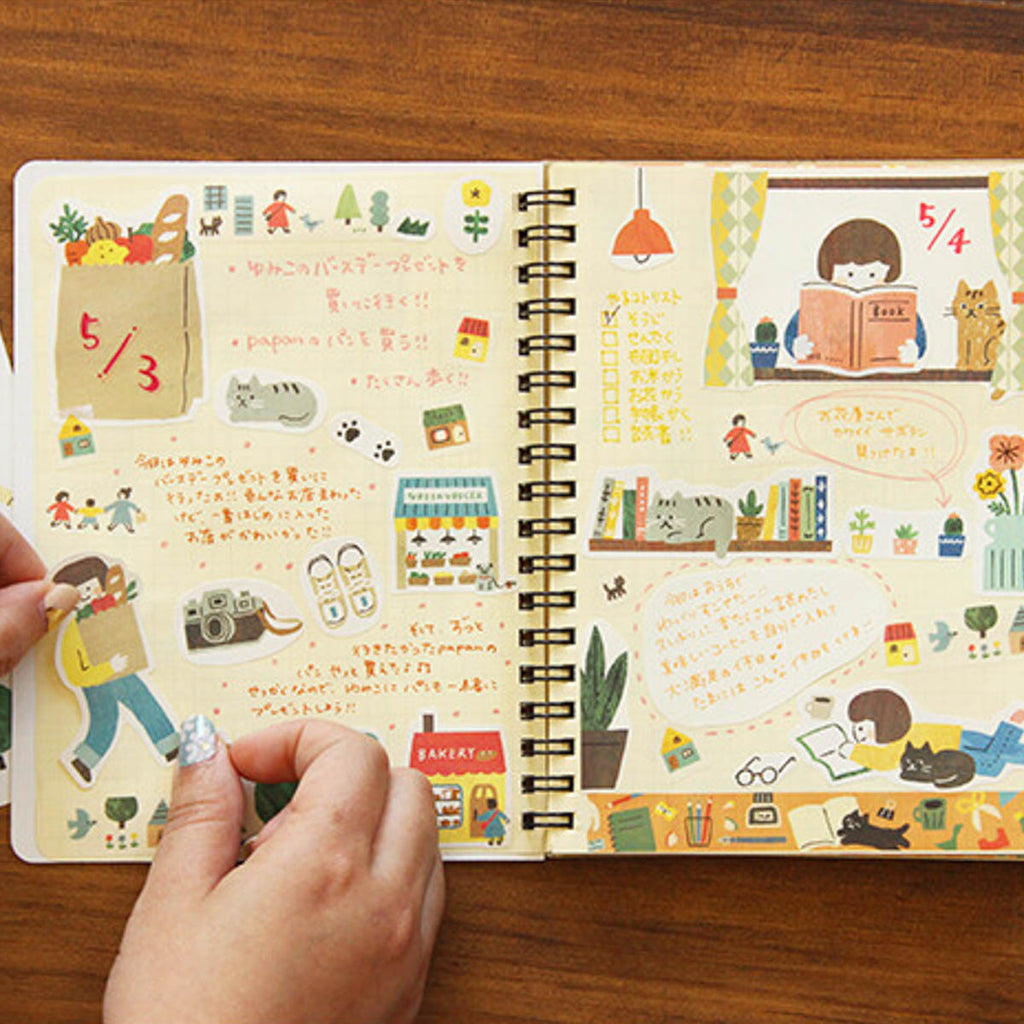 5/3
・ゆみこのバースデープレゼントを
買いに行く!!
・papanのパンを買う!!
・たくさん歩く!!
今日はゆみこの
バースデープレゼントを買いに
そうったのだ!! 色んなお店まわった
けど、一番はじめに入った
お店がかわいかった!!
GREENGROCER
そして、ずっと
行きたかったpapanの
パンやっと買えたよ
せっかくなので、ゆみこにパンも一緒に
プレゼントしよう!!
BAKERY
5/4
Book
やることリスト
そうじ
せんたく
布団干し
お米かう
お花かう
手帳かく
読書!!
お花屋さんで
カワイイサボテン
見つけたよ!!
今日はおうちで
ゆっくりすごせたー
久しぶりに、本たくさん読めたし
美味しいコーヒーを自分で入れて
大満足の休日
たまにはこんな休日もいいなー